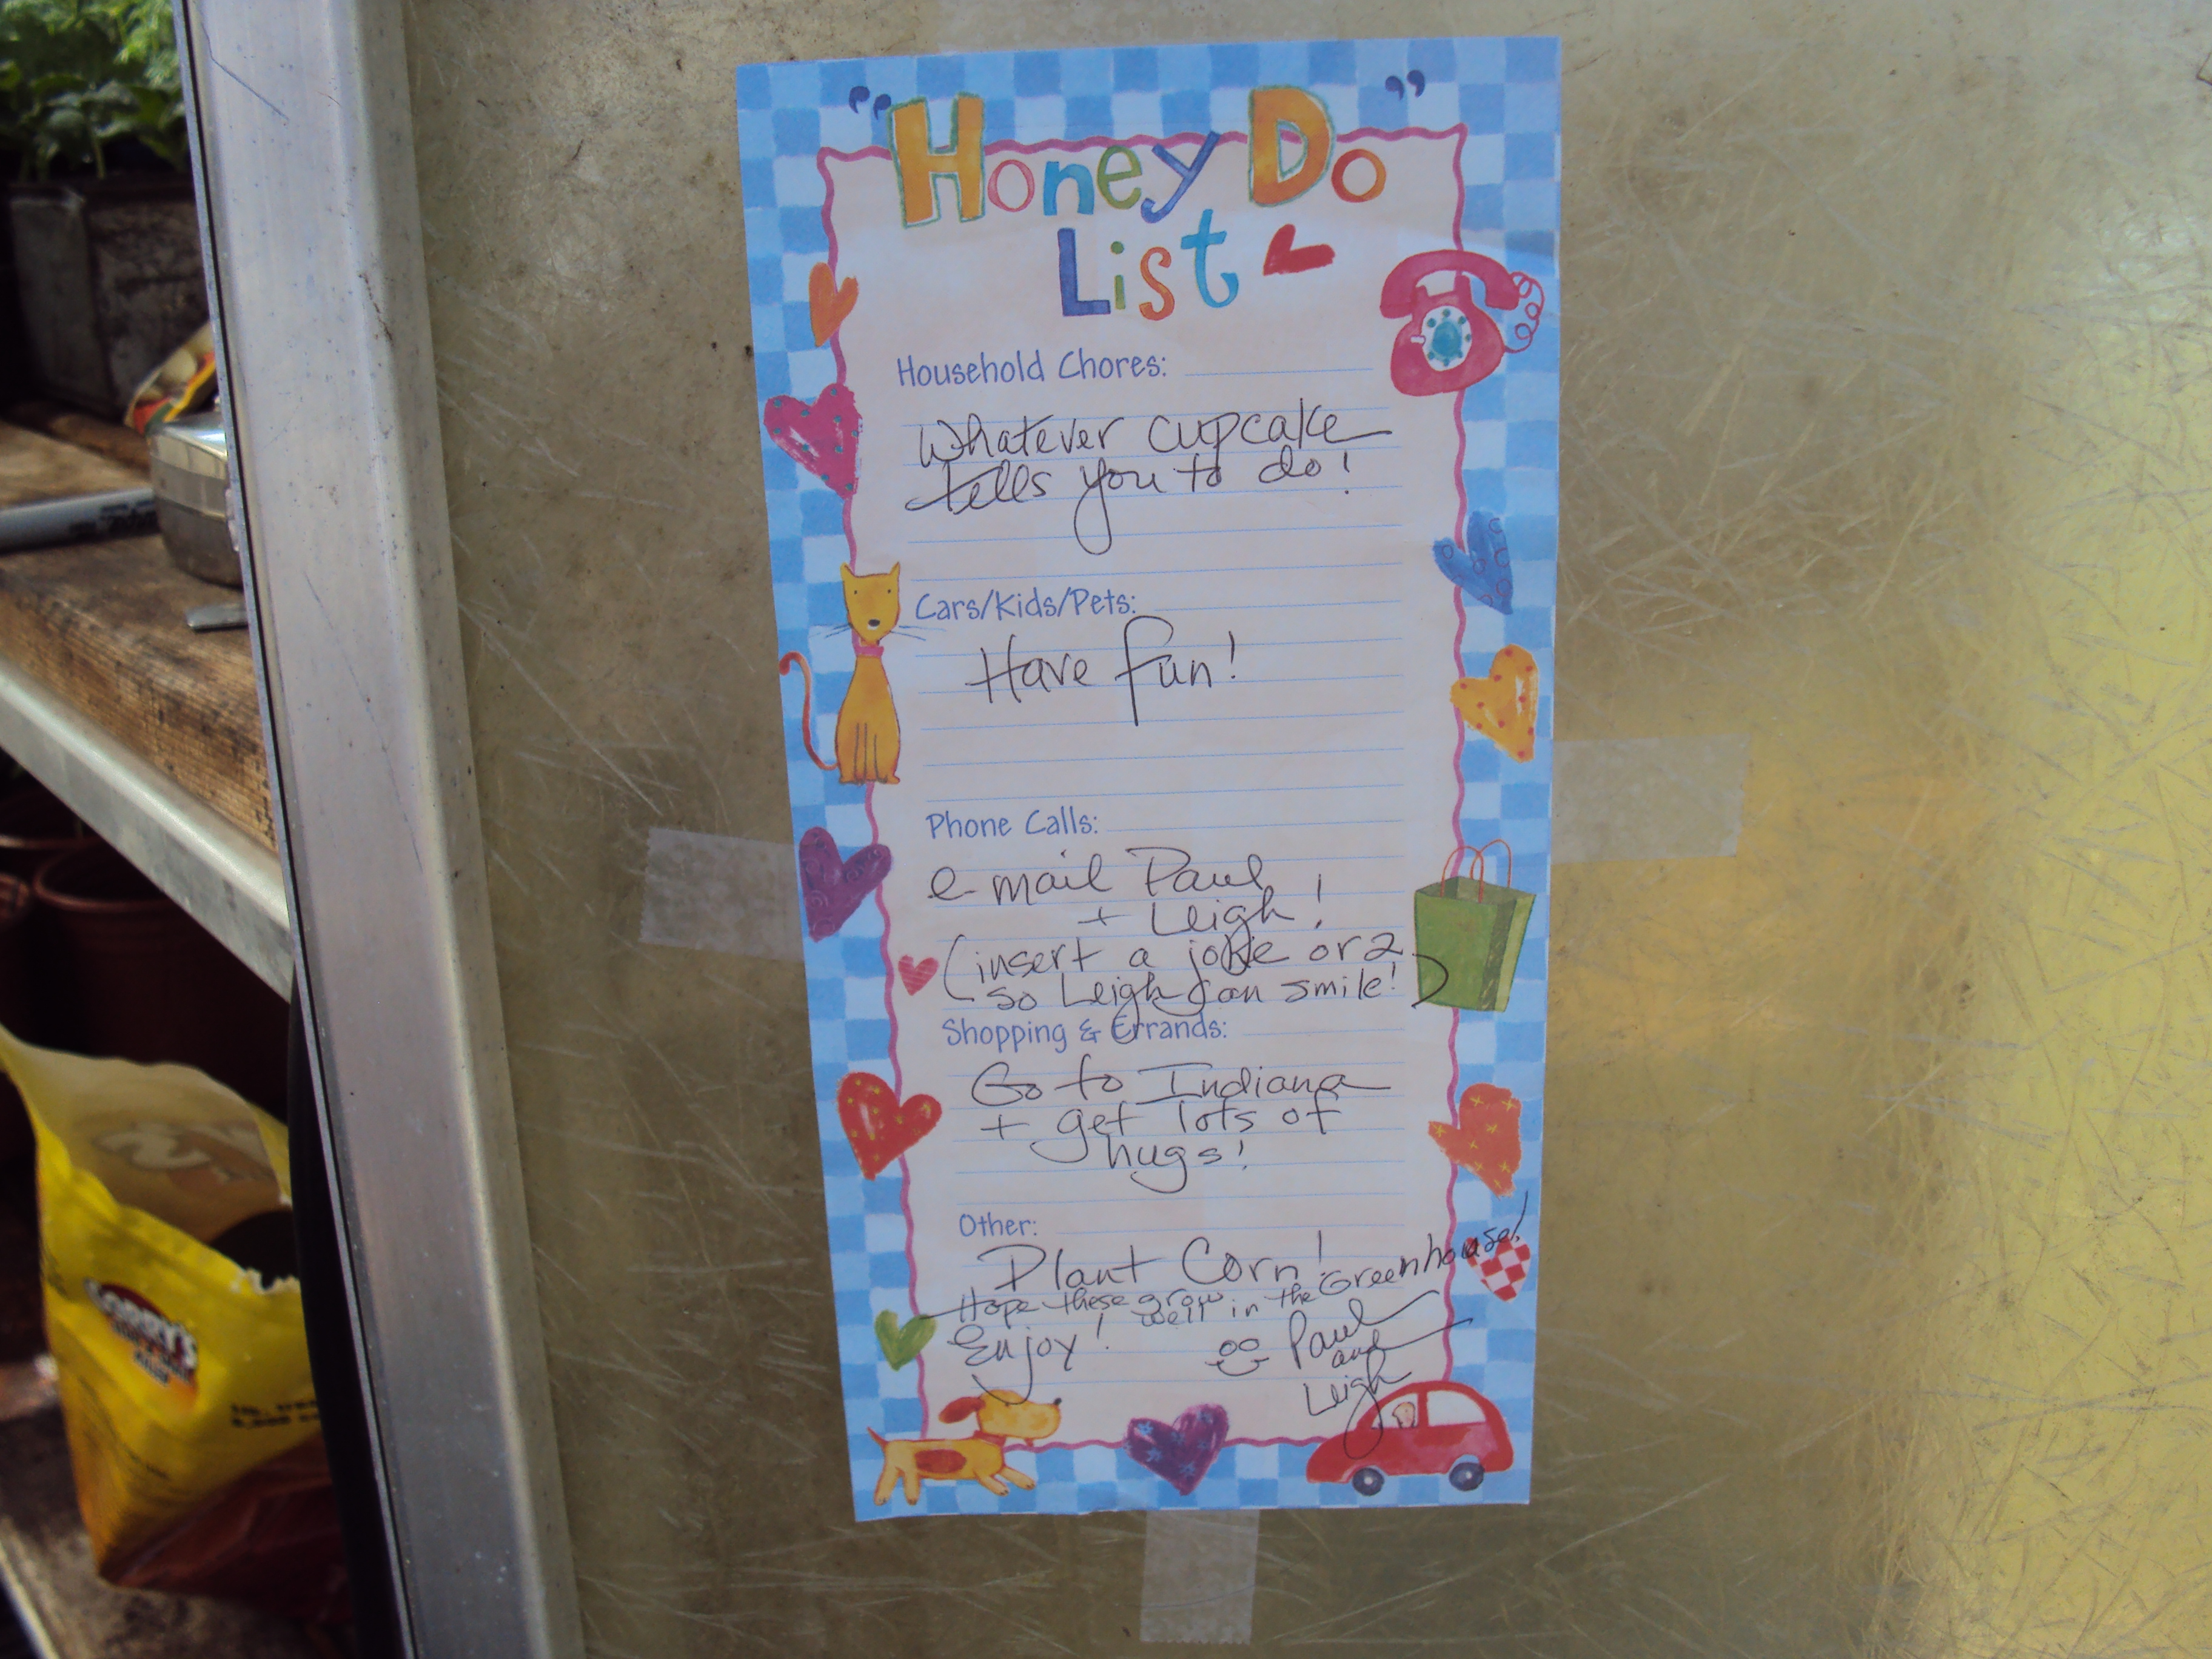 "Honey Do"
List
Household Chores:
Whatever cupcake
tells you to do!
Cars/Kids/Pets:
Have fun!
Phone Calls:
e-mail Paul
+ Leigh!
(insert a joke or 2
so Leigh can smile!)
Shopping & Errands:
Go to Indiana
+ get lots of
hugs!
Other:
Plant Corn!
Hope these grow well in the Greenhouse!
Enjoy!
Paul
and
Leigh